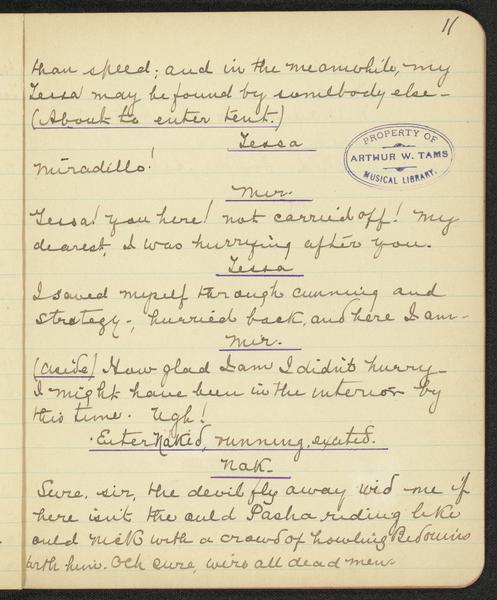 11
than speed; and in the meanwhile, my
Tessa may be found by somebody else -
(About to enter tent.)
Tessa
Miradillo!
PROPERTY OF
ARTHUR W. TAMS
MUSICAL LIBRARY.
Mir.
Tessa! you here! not carried off! My
dearest, I was hurrying after you.
Tessa
I saved myself through cunning and
strategy -, hurried back, and here I am -
Mir.
(aside) How glad I am I didn't hurry -
I might have been in the interior by
this time. Ugh!
Enter Naked, running, excited.
Nak.
Sure, sir, the devil fly away wid me if
here isn't the ould Pasha riding like
ould Nick with a crowd of howling Bedouins
with him. Och sure, we're all dead men.